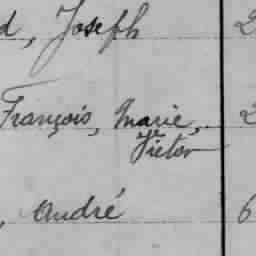 d, Joseph 2
François, Marie, 2
Victor
, André 6